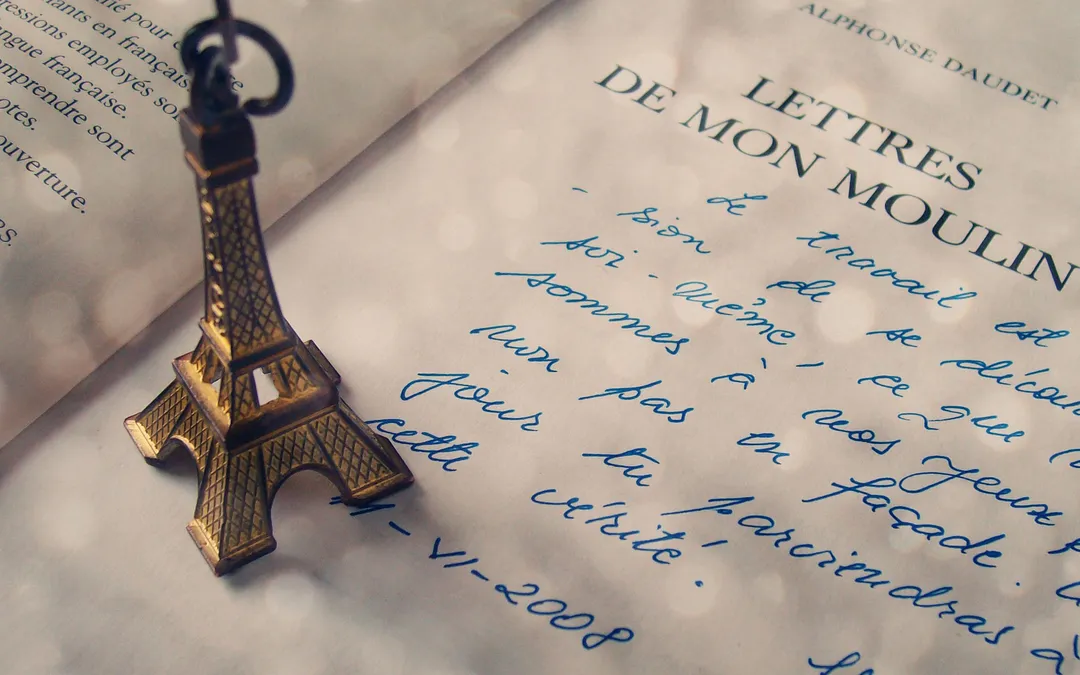 pour
ants en français
ressions employés so
ngue française.
omprendre sont
otes.
ouverture.
RS.
ALPHONSE DAUDET
LETTRES
DE MON MOULIN
Le travail est
- sion de se décou
soi-même, ce que n
sommes à nos yeux
non pas en façade.
jour tu parviendras à
cette vérité.
VI-2008